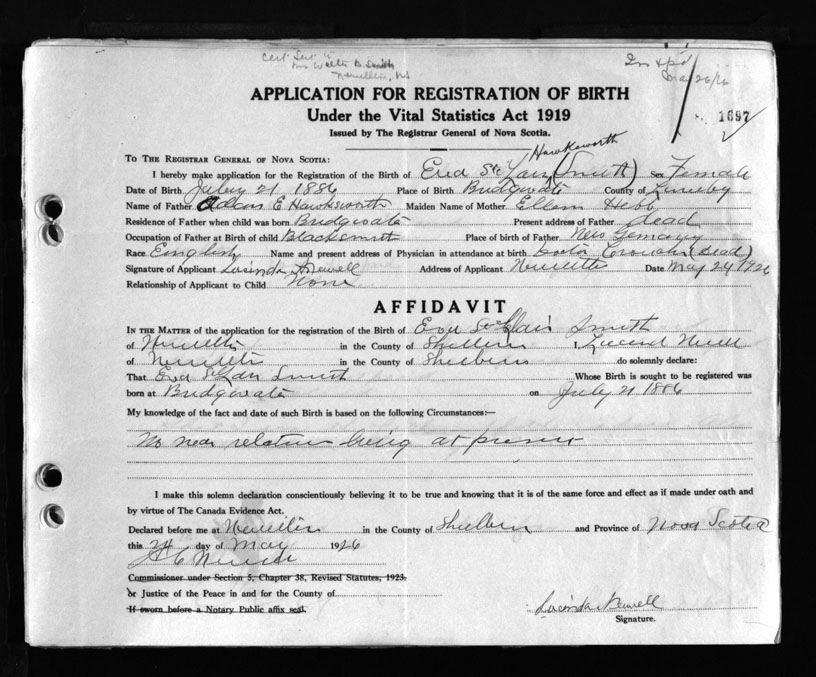 Cert Sent to
Mrs Walter B Smith
Newellton, NS
May 26/26
1697
APPLICATION FOR REGISTRATION OF BIRTH
Under the Vital Statistics Act 1919
Issued by The Registrar General of Nova Scotia.
Hawksworth
TO THE REGISTRAR GENERAL OF NOVA SCOTIA:
I hereby make application for the Registration of the Birth of (Smith) Sex Female
Date of Birth July 21 1886 Place of Birth Bridgwate County of
Name of Father E Hawksworth Maiden Name of Mother Ellen Hebb
Residence of Father when child was born Bridgwate Present address of Father dead
Occupation of Father at Birth of child Blacksmith Place of birth of Father New Germany
Race English Name and present address of Physician in attendance at birth Doctor (dead)
Signature of Applicant Lucinda Newell Address of Applicant Date May 24 1926
Relationship of Applicant to Child None
AFFIDAVIT
IN THE MATTER of the application for the registration of the Birth of Smith
of in the County of I,
of in the County of do solemnly declare:
That Smith Whose Birth is sought to be registered was
born at Bridgwate on July 21 1886
My knowledge of the fact and date of such Birth is based on the following Circumstances:—
No near relative being at present
I make this solemn declaration conscientiously believing it to be true and knowing that it is of the same force and effect as if made under oath and
by virtue of The Canada Evidence Act.
Declared before me at in the County of and Province of Nova Scotia
this 24 day of May 1926
Commissioner under Section 5, Chapter 38, Revised Statutes, 1923.
or Justice of the Peace in and for the County of
If sworn before a Notary Public affix seal.
Lucinda Newell
Signature.